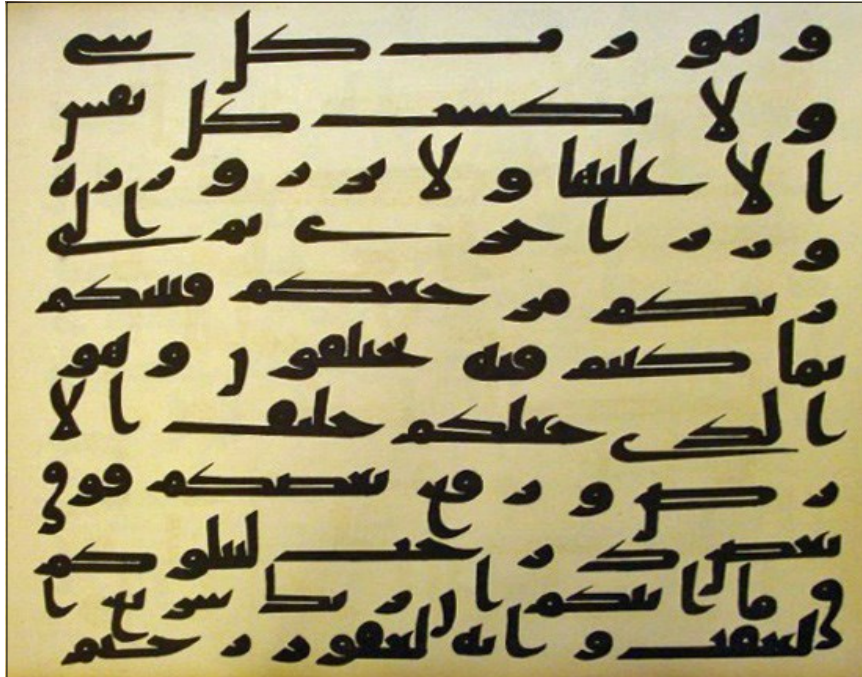 وهو رب كل شي
ولا تكسب كل نفس
الا عليها ولا تزر وزرة
وزر اخرى ثم الى
ربكم مرجعكم فينبئكم
بما كنتم فيه تختلفون وهو
الذي جعلكم خليف الا
رض ورفع بعضكم فوق
بعض درجت ليبلوكم
في ما اتيكم ان ربك سريع ا
لعقب وانه لغفور رحيم